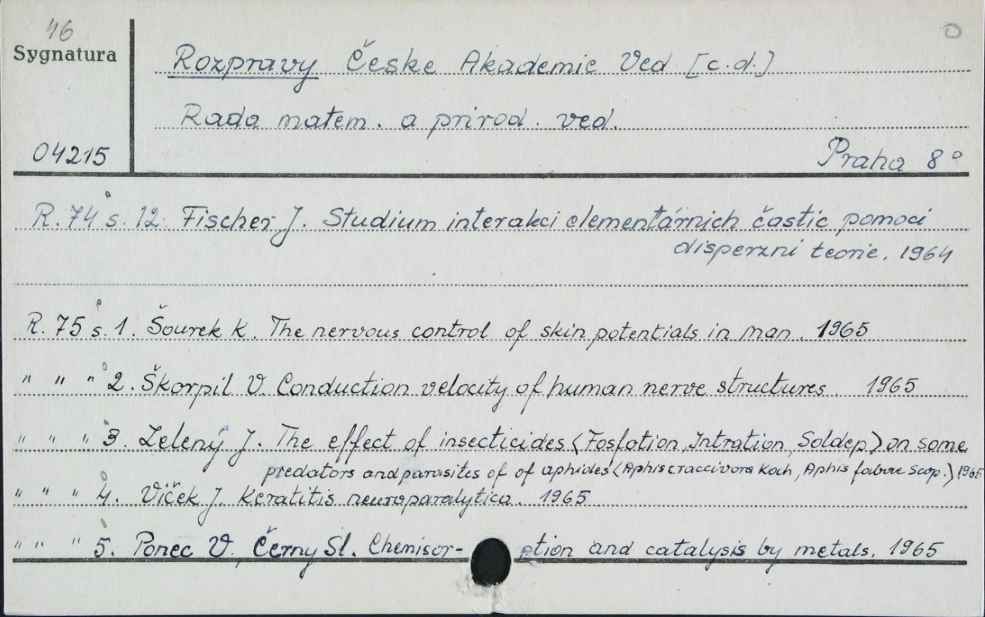 46
Sygnatura
Rozpravy České Akademie Věd [c.d.]
Rada matem. a prirod. ved.
04215
Praha 8°
R. 74 s. 12. Fischer J. Studium interakci elementárnich častic pomoci
disperzni teorie. 1964
R. 75 s. 1. Šourek K. The nervous control of skin potentials in man. 1965
" " " 2. Škorpil V. Conduction velocity of human nerve structures. 1965
" " " 3. Zelený J. The effect of insecticides (Fosfotion, Intration, Soldep) on some
predators and parasites of of aphides (Aphis craccivora Koch, Aphis fabae Scop.) 1965
" " " 4. Viček J. Keratitis neuroparalytica. 1965
" " " 5. Ponec V. Černy Sl. Chemisor- ption and catalysis by metals. 1965